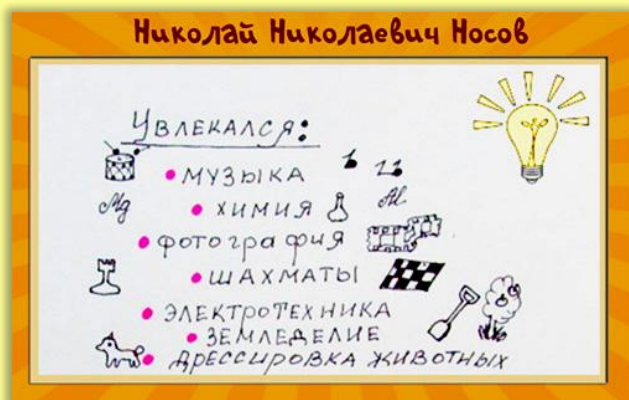 Николай Николаевич Носов
Увлекался:
• музыка
Mg • химия Al
• фотография
• шахматы
• электротехника
• земледелие
• дрессировка животных